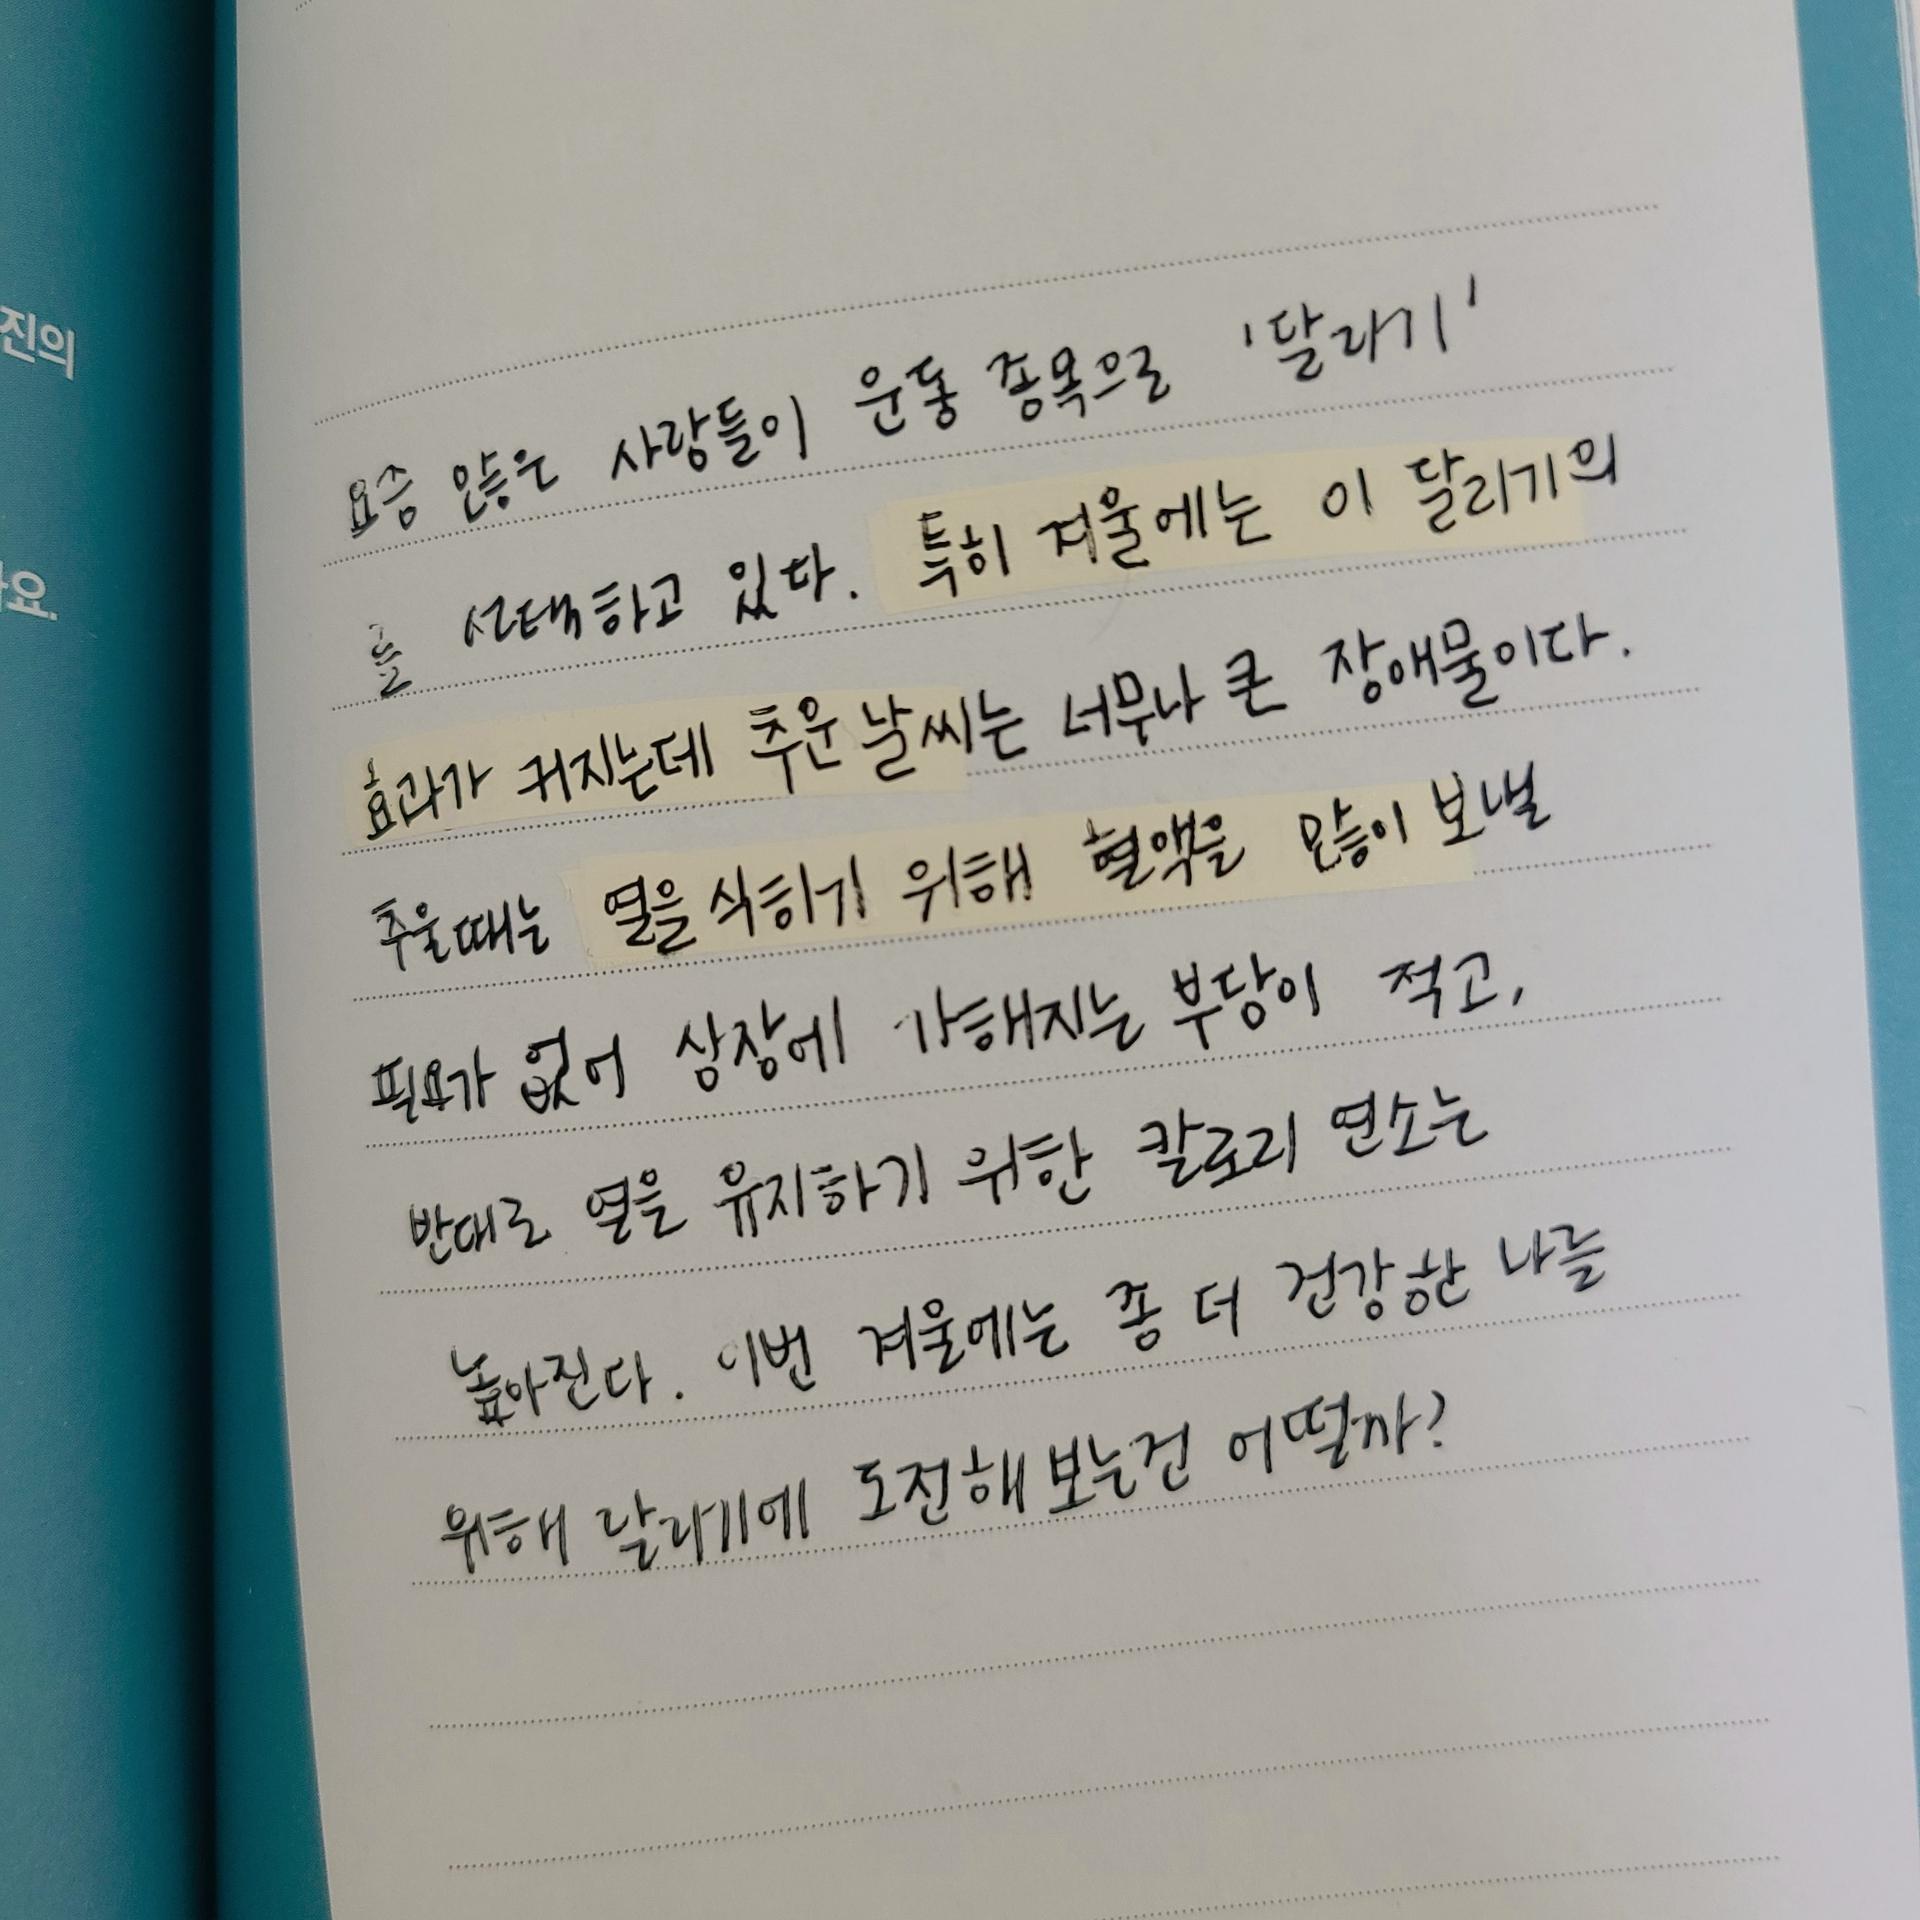 진의
요.
요즘 많은 사람들이 운동 종목으로 '달리기'
를 선택하고 있다. 특히 겨울에는 이 달리기의
효과가 커지는데 추운 날씨는 너무나 큰 장애물이다.
추울때는 열을 식히기 위해 혈액을 많이 보낼
필요가 없어 심장에 가해지는 부담이 적고,
반대로 열을 유지하기 위한 칼로리 연소는
높아진다. 이번 겨울에는 좀 더 건강한 나를
위해 달리기에 도전해 보는건 어떨까?